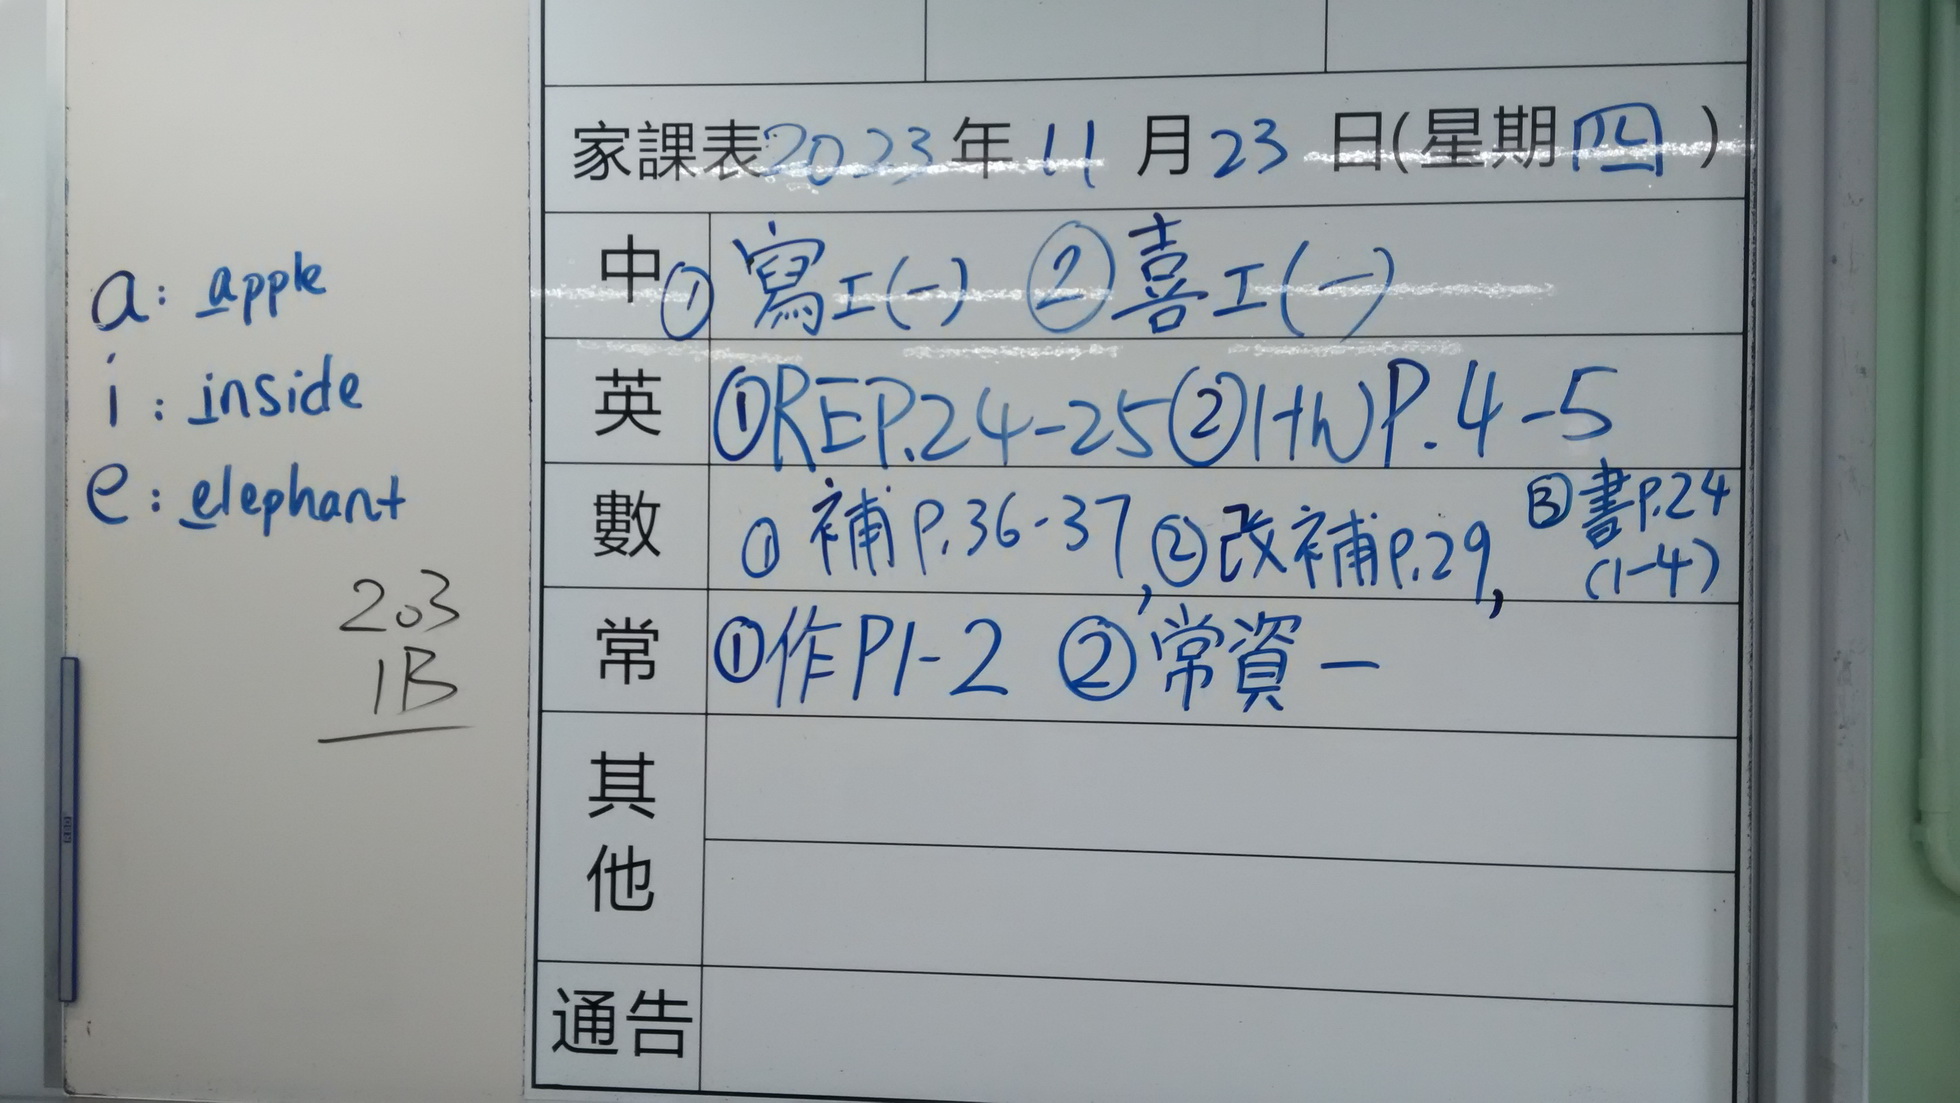 a: apple
i: inside
e: elephant
203
1B
家課表2023年11月23日(星期四)
中 ① 寫工(一) ② 喜工(一)
英 ①REP.24-25②HWP.4-5
數 ① 補P.36-37, ②改補P.29, ③書P.24
(1-4)
常 ①作P1-2 ②常資一
其
他
通告